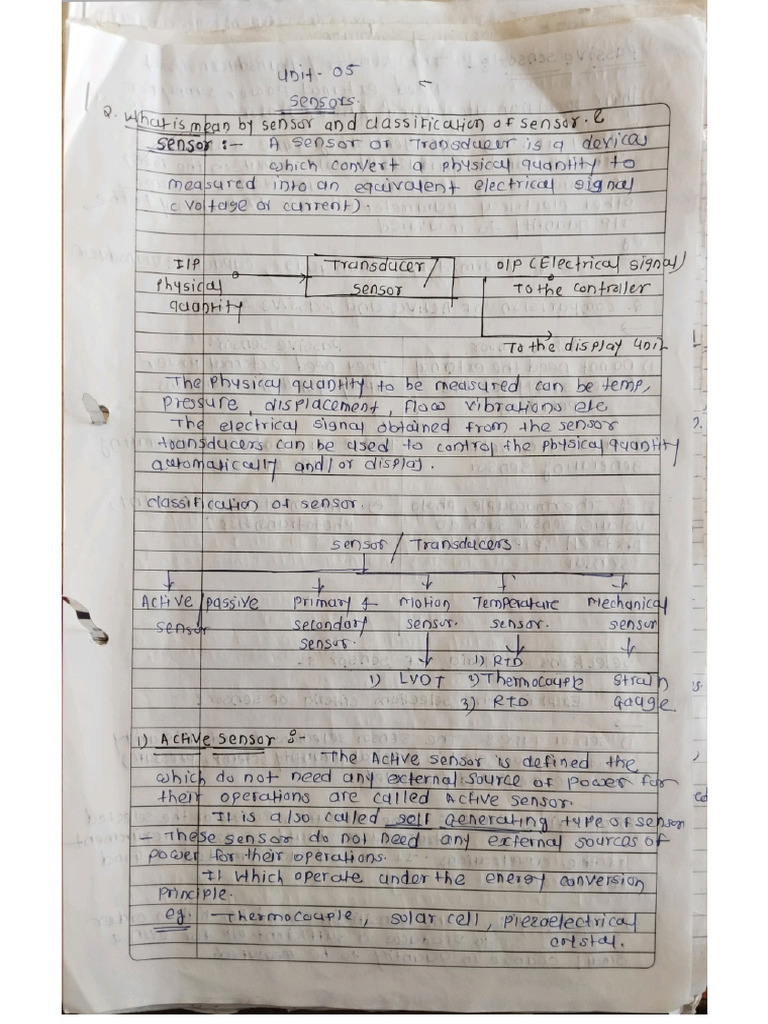 Unit- 05
Sensors.
Q. What is mean by sensor and classification of sensor.
Sensor :- A sensor or Transducer is a devices
which convert a physical quantity to
measured into an equivalent electrical signal
(voltage or current).
I/P Transducer/ O/P (Electrical signal)
Physical sensor To the controller
quantity
To the display unit
The physical quantity to be measured can be temp,
pressure, displacement, flow vibrations etc
The electrical signal obtained from the sensor
transducers can be used to control the physical quantity
automatically and/or display.
classification of sensor.
sensor / Transducers.
Active/passive Primary & Motion Temperature Mechanical
sensor secondary sensor. sensor. sensor
sensor.
1) RTD
1) LVDT 2) Thermocouple Strain
3) RTD Gauge
1) Active sensor :-
The Active sensor is defined the
which do not need any external source of power for
their operations are called Active sensor.
It is also called self generating type of sensor
- These sensor do not need any external sources of
power for their operations.
It which operate under the energy conversion
principle.
eg. - Thermocouple, solar cell, piezoelectrical
crystal.